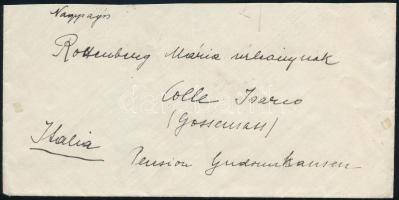 Nagysás
Rottenberg Mária úrleánynak
Colle Isarco
(Gossensass)
Italia
Pension Gudrunhausen